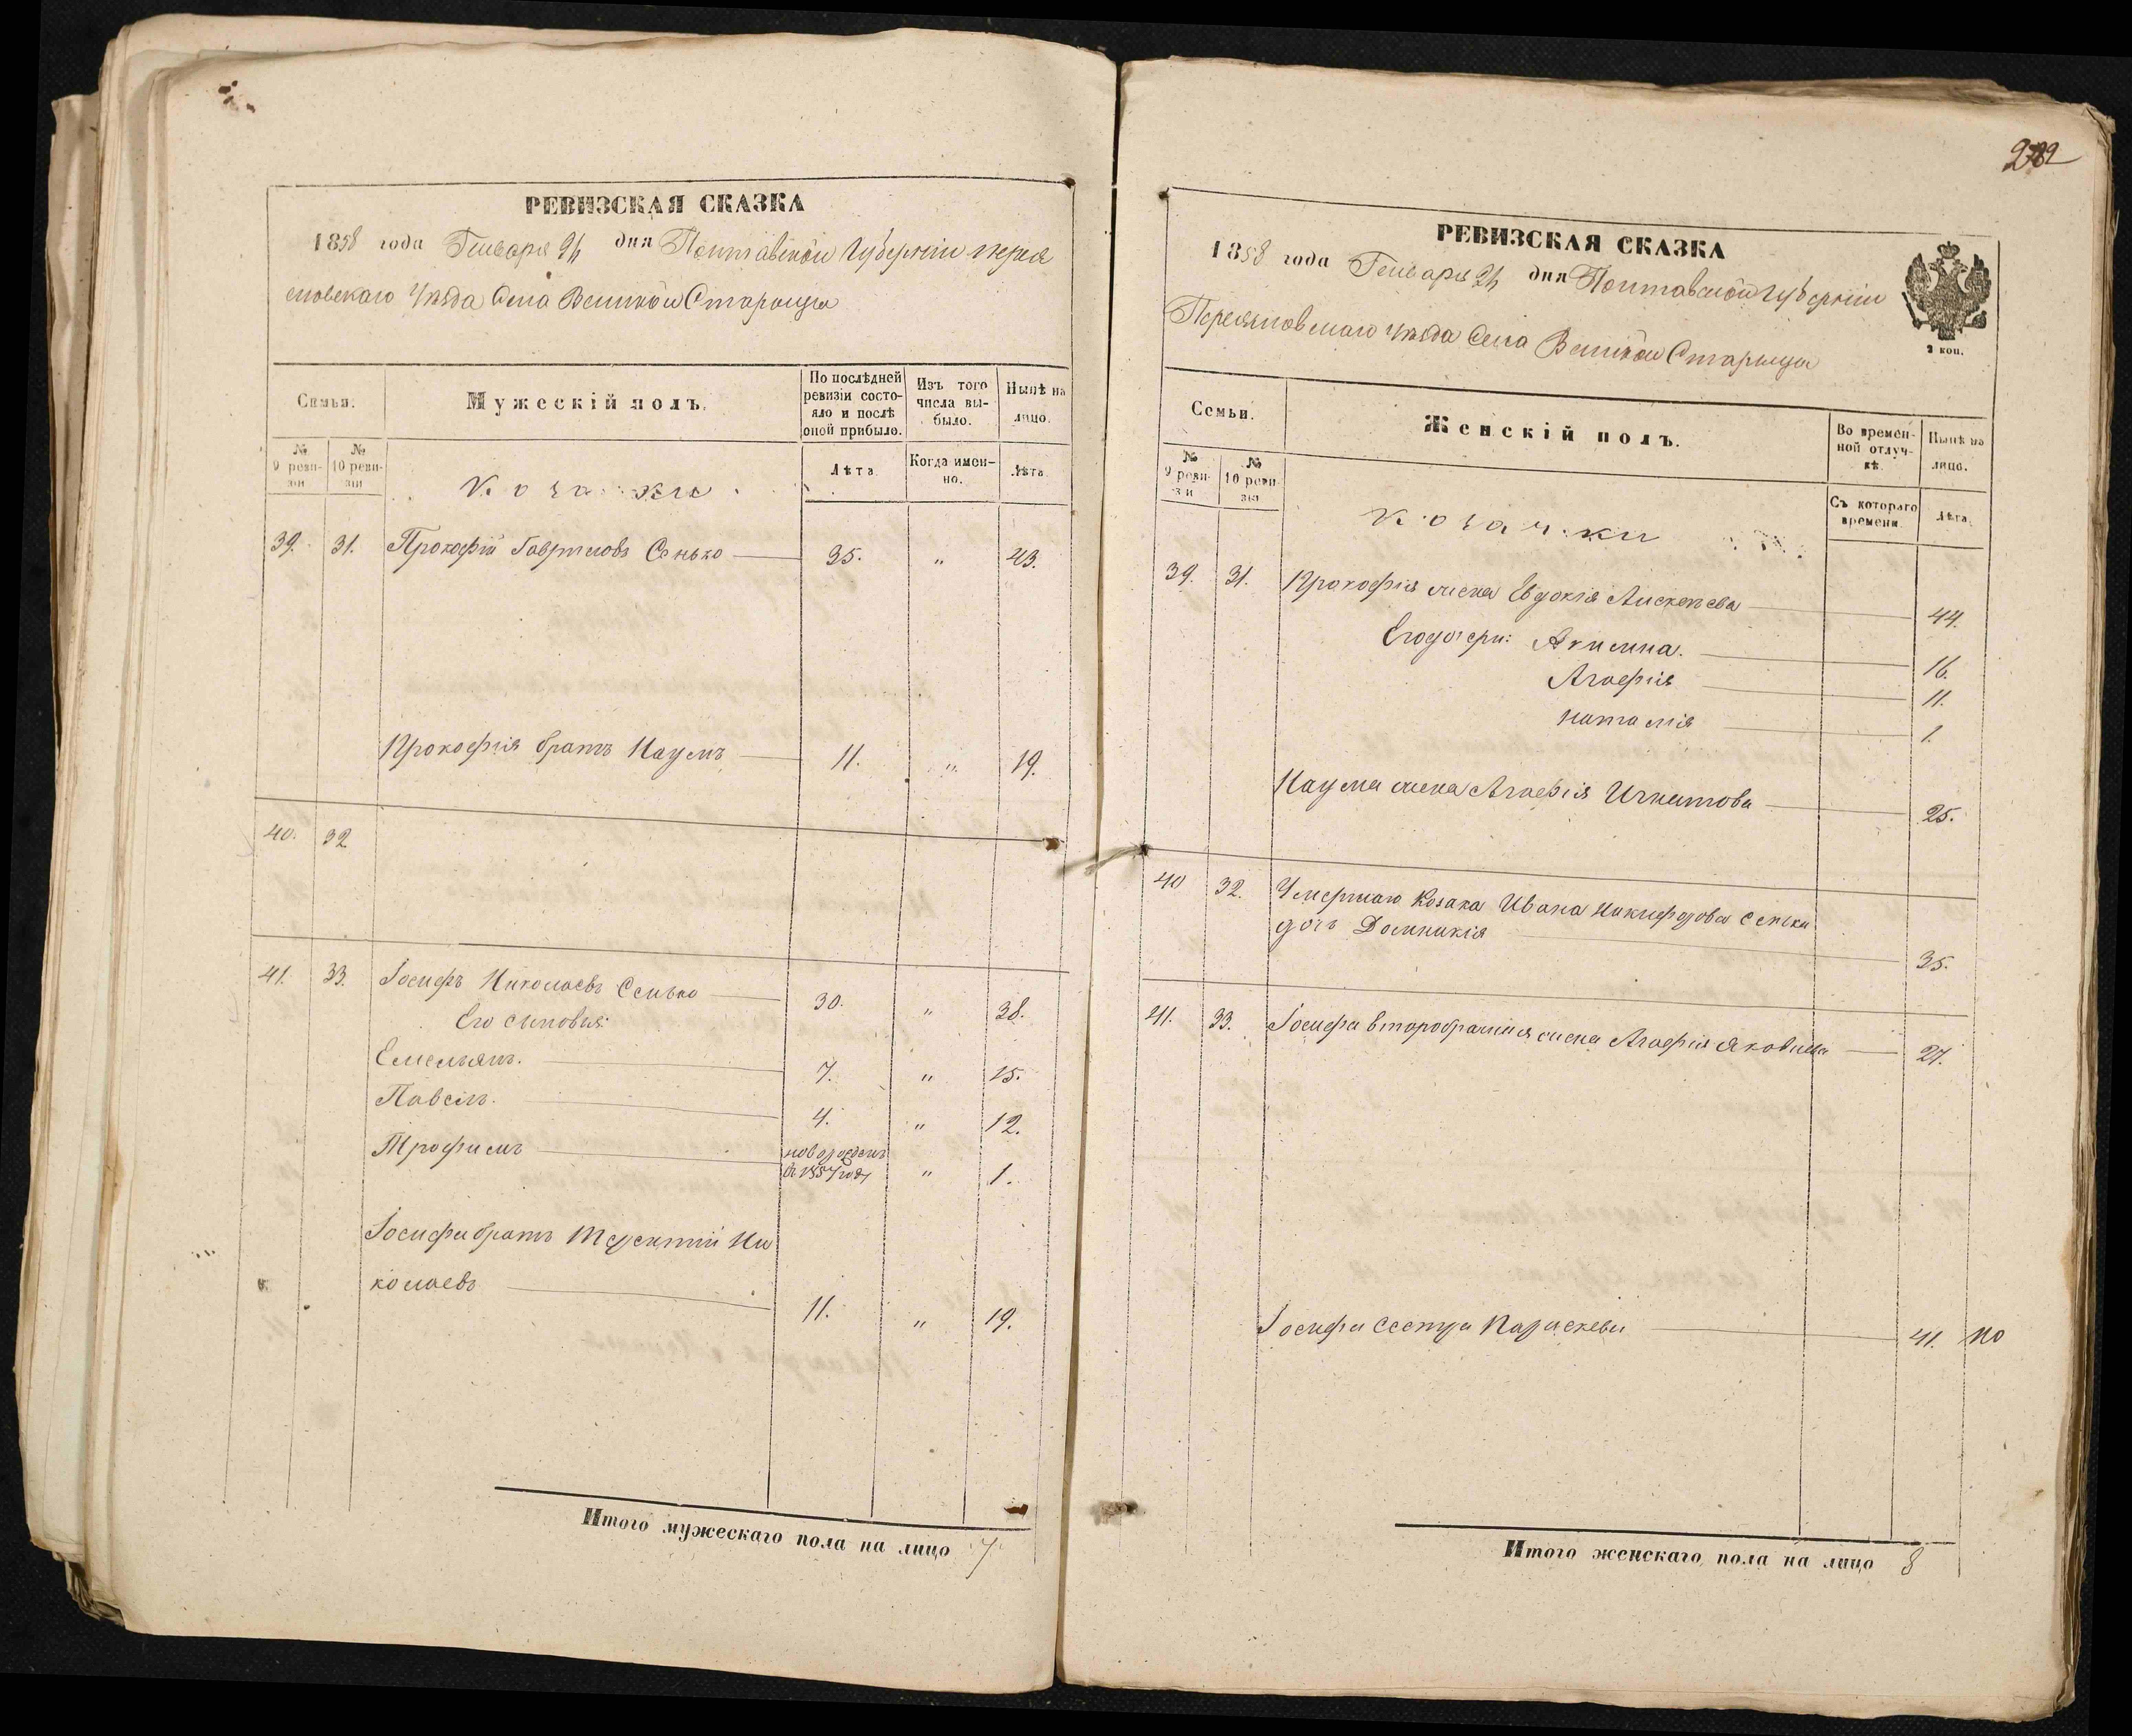 РЕВИЗСКАЯ СКАЗКА
1858 года Генваря 24 дня Полтавской Губернии Перея
словскаго Уѣзда Села Великой Старицы
Семьи.
Мужескій полъ.
По послѣдней ревизіи состояло и послѣ оной прибыло.
Изъ того числа выбыло.
Нынѣ на лицо.
№ 9 ревизіи
№ 10 ревизіи
Козаки
Лѣта.
Когда именно.
Лѣта
39. 31. Прокофій Гавриловъ Сенько 35. " 43.
Прокофія братъ Наумъ 11. " 19.
40. 32
41. 33. Іосифъ Николаевъ Сенько 30. " 38.
Его сыновья:
Емельянъ. 7. " 15.
Павелъ. 4. " 12.
Трофимъ новорожденъ въ 1857 году " 1.
Іосифа братъ Терентій Ни
колаевъ 11. " 19.
Итого мужескаго пола на лицо 7
282
РЕВИЗСКАЯ СКАЗКА
1858 года Генваря 24 дня Полтавской Губерніи
Переяславскаго Уѣзда Села Великой Старицы
2 коп.
Семьи.
Женскій полъ.
Во временной отлучкѣ.
Нынѣ на лицо.
№ 9 ревизи
№ 10 ревизіи
Козачки
Съ котораго времени.
Лѣта.
39. 31. Прокофія жена Евдокія Алексѣева 44.
Его дочери: Акилина. 16.
Агафія 11.
Наталія 1.
Наума жена Агафія Игнатова 25.
40 32. Умершаго Козака Ивана Никифорова Сеньки
дочь Домникія 35.
41. 33. Іосифа второбрачная жена Агафія Яковлева 27.
Іосифа Сестра Параскева 41. но
Итого женскаго пола на лицо 8